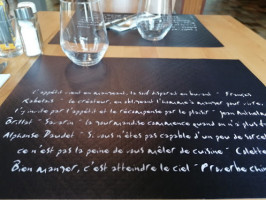 L'appétit vient en mangeant, la soif disparaît en buvant - François
Rabelais - Le créateur, en obligeant l'homme à manger pour vivre,
l'y invite par l'appétit et le récompense par le plaisir - Jean Anthelme
Brillat - Savarin - La gourmandise commence quand on n'a plus
Alphonse Daudet - Si vous n'êtes pas capable d'un peu de sorcel
ce n'est pas la peine de vous mêler de cuisine - Colette
Bien manger, c'est atteindre le ciel - Proverbe chin